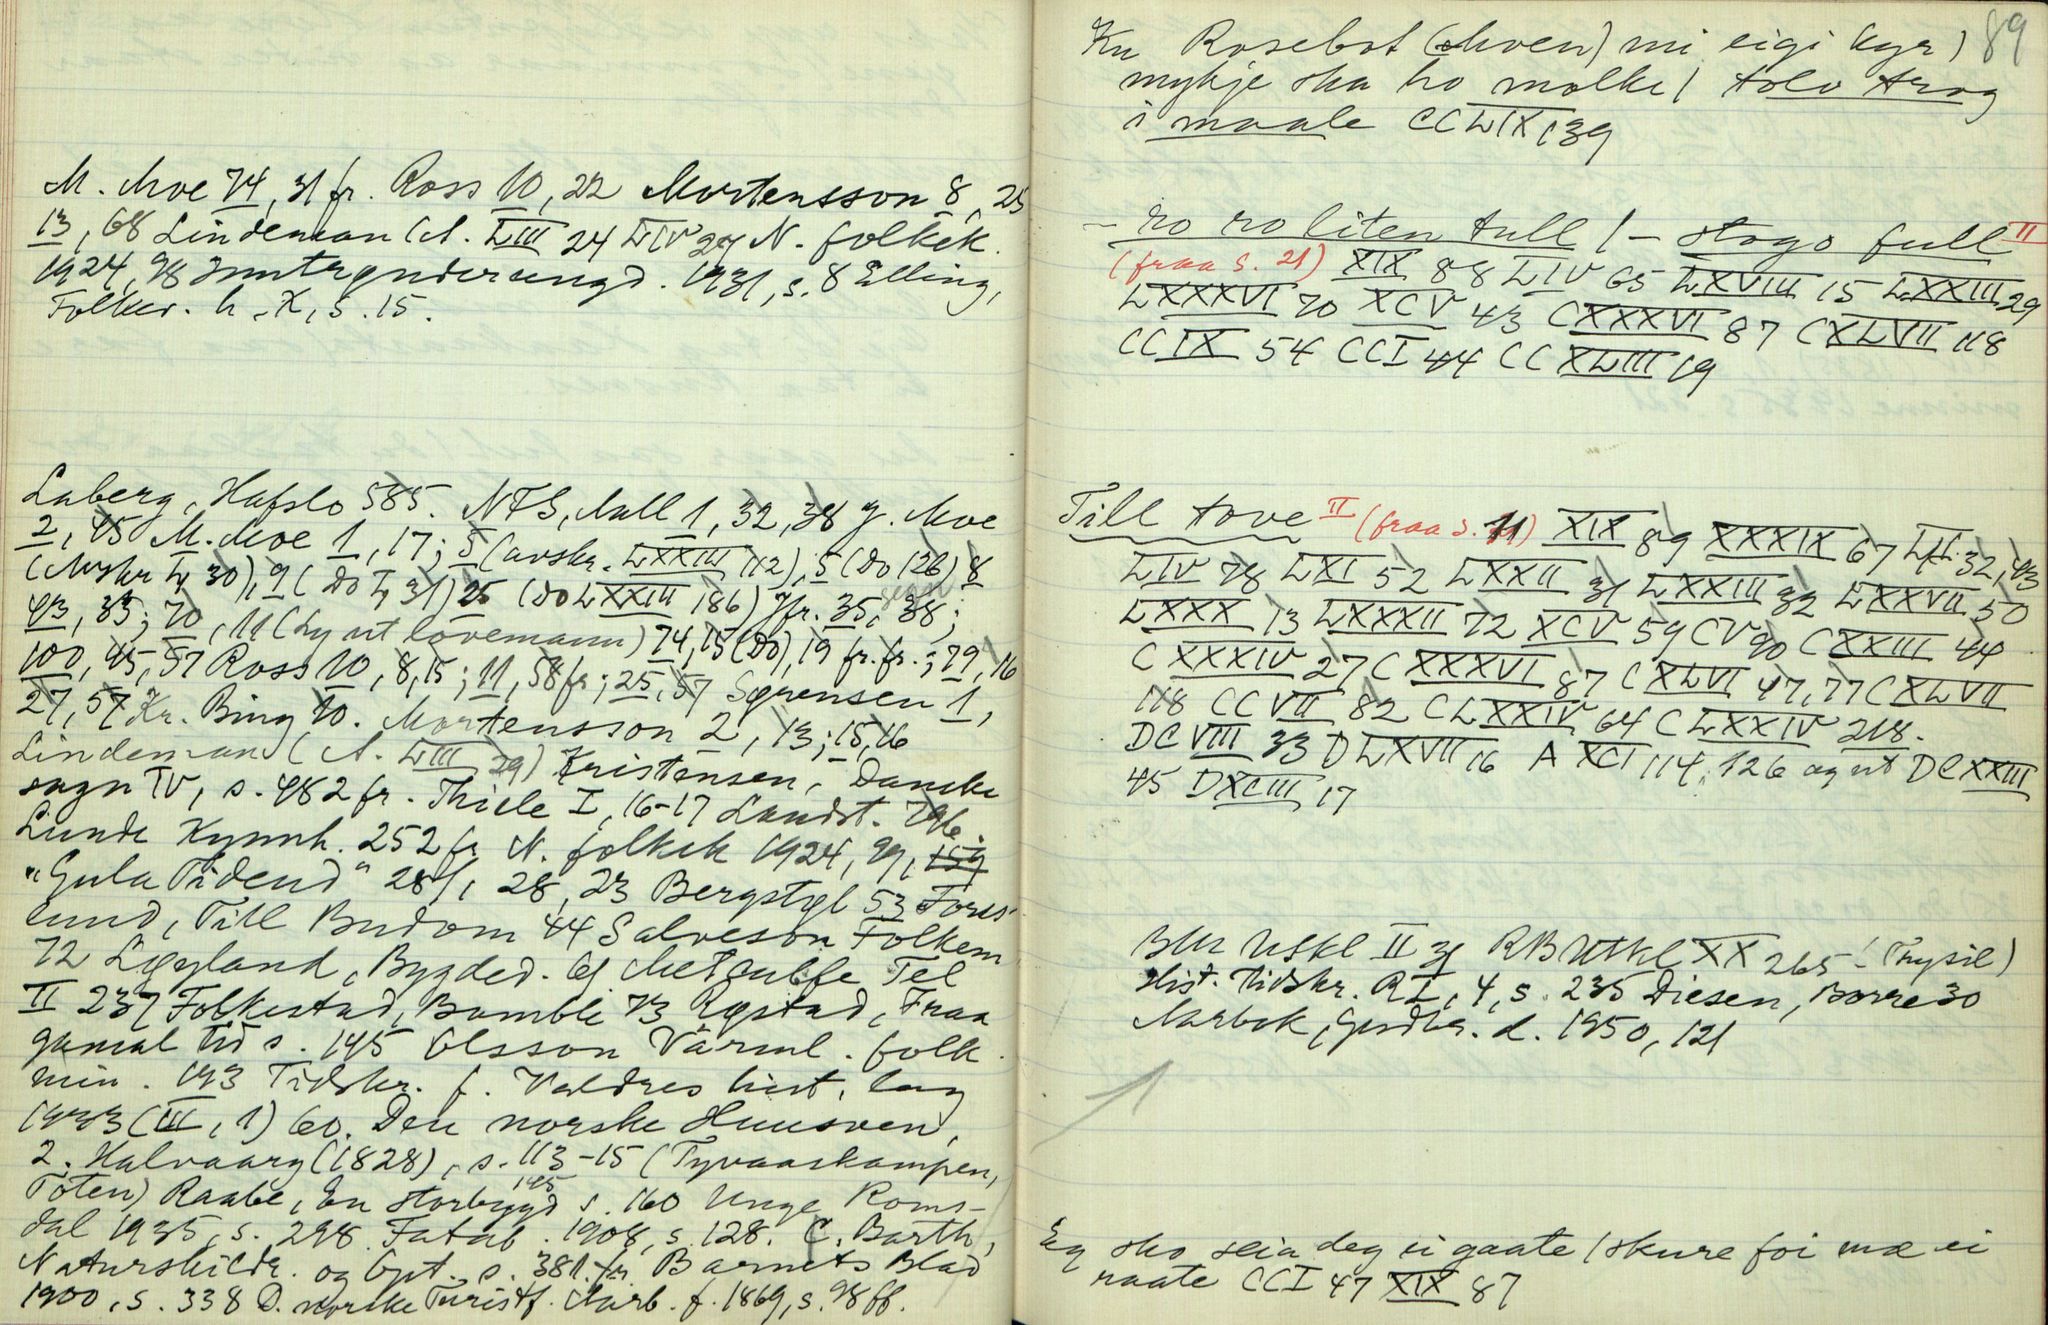 M. Moe 74, 31 fr. Ross 10, 22 Mortensson 8, 25
13, 68 Lindeman (A. LIII 24 LIV 29 N. folkek.
1924, 98 1931, s. 8 Elling,
Folkev. h. X, s. 15.
Laberg, Hafslo 585. NFS, Aall 1, 32, 38 J. Moe
2, 45 M. Moe 1, 17; 5 (avskr. LXXIII 112), 5 (Do 126) 8
(Avskr L, 30), 9 (Do L, 31) 25 (Do LXXIII 186) Jfr. 35, 38;
43, 35; 70, 11 (Ly ut lovemann) 74, 15 (Do), 19 fr. fr.; 79, 16
100, 45, 57 Ross 10, 8, 15; 11, 58 fr; 25, 57 Sørensen 1,
27, 57 Kr. Bing 10. Mortensson 2, 13; 15, 16
Lindeman (A. LIII 29) Kristensen, Danske
sagn IV, s. 482 fr. Thiele I, 16-17 Landst. 796
Lunde Kynnh. 252 fr N. folkek 1924, 99, 159
"Gula Tidend" 28/1 28, 23 Bergstøl 53
lund, Till Budom 44 Salveson Folkem
72 Ligyland, Bygded. og Tel
II 237 Folkestad, Bamble 73 Rystad, Fraa
gamal tid s. 145 Olsson Värml. folk.
min. 193 Tidskr. f. Valdres hist. lag
1923 (III, 1) 60. Den norske Huusven,
2. Halvaarg (1828), s. 113-15 (Tyvaaskampen,
Toten) Raabe, En storbygd s. 145 160 Unge Roms-
dal 1935, s. 298 Fatab. 1908, s. 128. C. Barth,
Naturskildr. og Opt. s. 381. fr. Barnets Blad
1900, s. 338 D. norske Turistf. Aarb. f. 1869, s. 98 ff.
89
Ku Rosebot (Moen) mi eigi kyr /
mykje ska ho molke / tolv trog
i maale CCLIX 139
- ro ro liten tull / - stogo full II
(fraa s. 21) XIX 88 LIV 65 LXVIII 15 LXXIII 29
LXXXVI 70 XCV 43 CXXXVI 87 CXLVII 118
CCIX 54 CCI 44 CCXLIII 19
Till tove II (fraa s. 71) XIX 89 XXXIX 67 32, 43
LIV 78 LXI 52 LXXII 31 LXXIII 32 LXXVII 50
LXXX 13 LXXXII 72 XCV 59 CV 90 CXXIII 44
CXXXIV 27 CXXXVI 87 CXLVI 47, 77 CXLVII
118 CCVII 82 CLXXIV 64 CLXXIV 218.
DCVIII 33 DLXVII 16 A XCI 114, 126 og ut DCXXIII
45 DXCIII 17
II 31 RB Utkl XX 265 (Trysil)
Hist. Tidskr. R I, 4, s. 235 Diesen, Borre 30
Aarbok, Gudbr. d. 1950, 121
Eg sko seia deg ei gaate / skure foi mæ ei
raate CCI 47 XIX 87